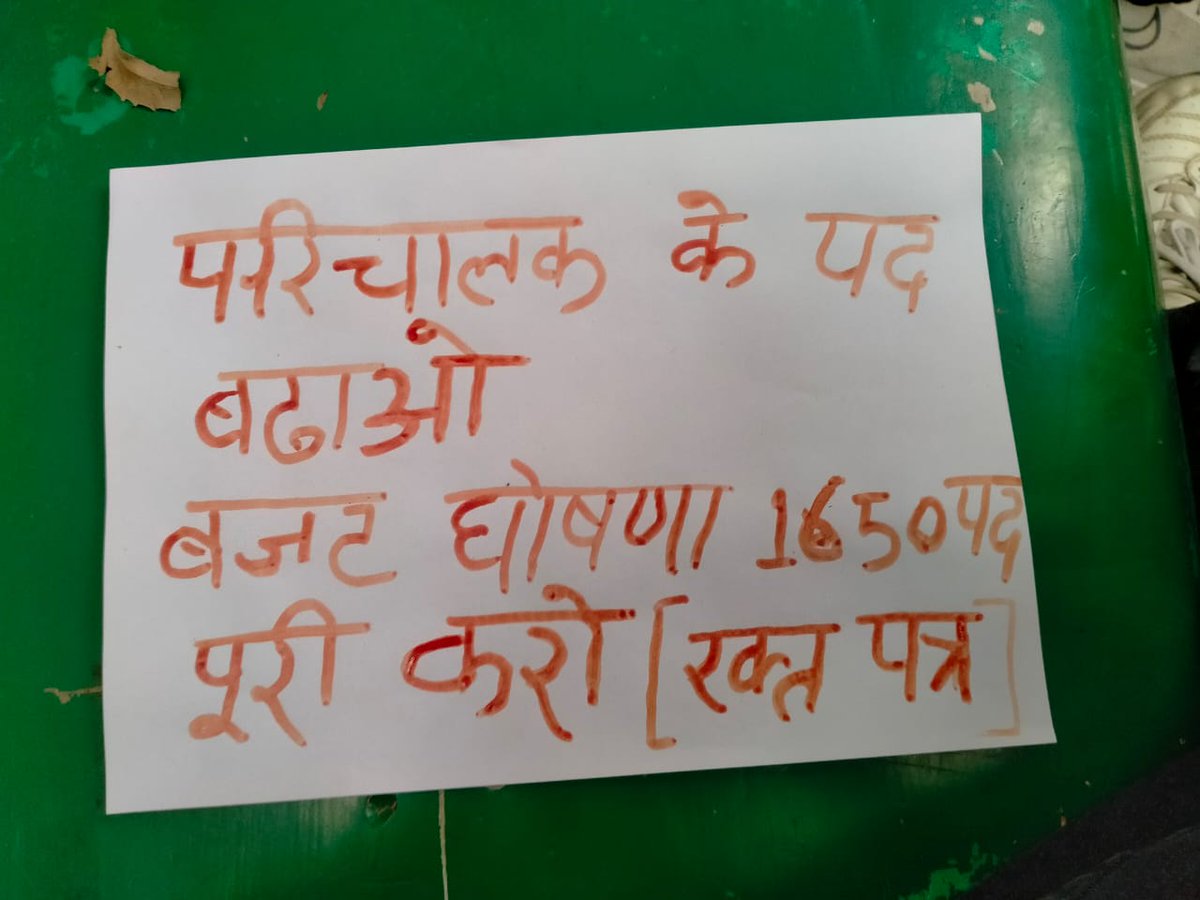 परिचालक के पद
बढाओ
बजट घोषणा 1650 पद
पूरी करो [रक्त पत्र]